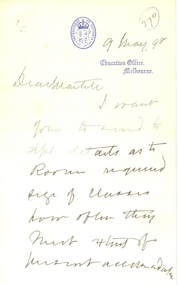 270
9 May, 98
Education Office,
Melbourne.
Dear Martele
I want
you to send to
dept. details as to
Rooms required
size of classes
how often they
meet & kind of
present accommodation